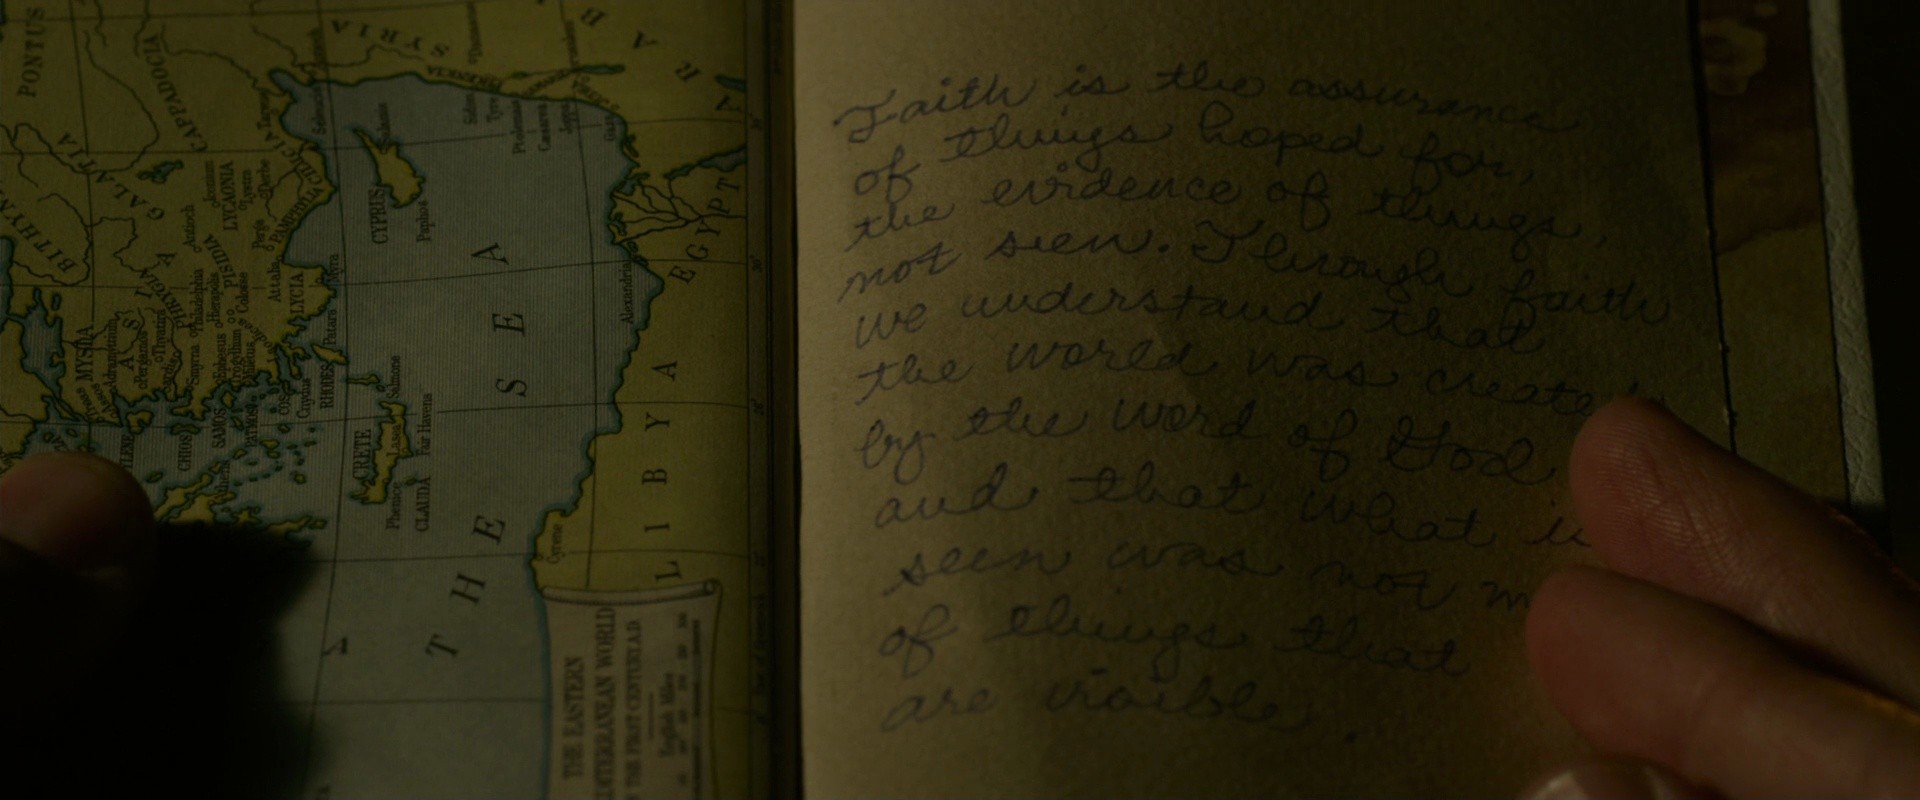 Faith is the assurance
of things hoped for,
the evidence of things
not seen. Through faith
we understand that
the world was create
by the word of God
and that what is
seen was not m
of things that
are visible.
PONTUS
CAPPADOCIA
GALATIA
BITHYN
SYRIA
A R A B
LYCAONIA
PISIDIA
PAMPHYLIA
PHRYGIA
ASIA
MYSIA
LYCIA
Derbe
Lystra
Iconium
Antioch
Perga
Attalia
Myra
Patara
Colosse
Hierapolis
Philadelphia
Smyrna
Pergamos
Adramyttium
CHIOS
SAMOS
PATMOS
COS
Cnydus
RHODES
CYPRUS
Salamis
Paphos
Seleucia
Tarsus
Sidon
Tyre
Ptolemais
Caesarea
Joppa
Gaza
EGYPT
Alexandria
LIBYA
Cyrene
CRETE
Salmone
Lasea
Fair Havens
Phenice
CLAUDA
THE SEA
THE EASTERN
DITERRANEAN WORLD
THE FIRST CENTURY A.D.
English Miles